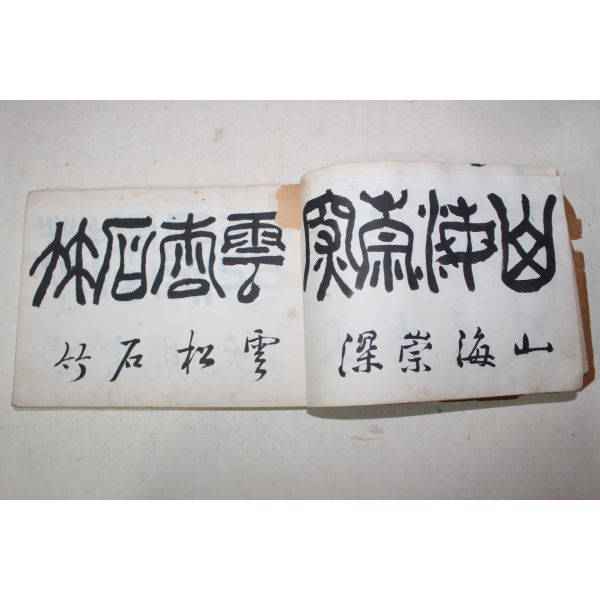 山海崇深
山海崇深
雲松石竹
雲松石竹